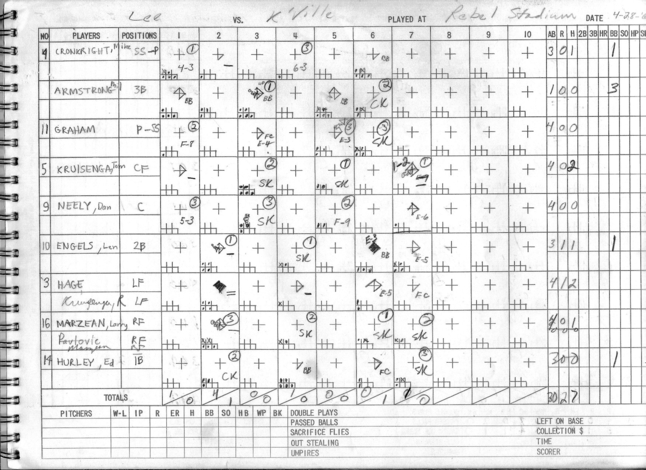 Lee VS. K'Ville PLAYED AT Rebel Stadium DATE 4-28-
NO PLAYERS POSITIONS 1 2 3 4 5 6 7 8 9 10 AB R H 2B 3B HR BB SO HP
4 CRONKRIGHT, Mike SS-P 1 4-3 3 6-3 BB 3 0 1 1
ARMSTRONG 3B BB 1 BB BB 2 CK 1 0 0 3
11 GRAHAM P-SS 2 F-8 FC E-4 E-3 3 SK 4 0 0
5 KRUISENGA, Tom CF 2 SK 1 SK 1 4 0 2
9 NEELY, Don C 3 5-3 3 SK 2 F-9 E-6 4 0 0
10 ENGELS, Len 2B 1 1 SK BB E-5 3 1 1 1
3 HAGE LF E-5 FC 4 1 2
R LF
16 MARZEAN, Larry RF 3 2 SK 1 SK 2 SK 4 0 1
Pavlovic RF
14 HURLEY, Ed 1B 2 CK BB FC 3 SK 3 0 0 1
TOTALS 1/0 4/1 0/0 1/0 0/0 1/1 1/0 30 2 7
PITCHERS W-L IP R ER H BB SO HB WP BK DOUBLE PLAYS
PASSED BALLS LEFT ON BASE
SACRIFICE FLIES COLLECTION $
OUT STEALING TIME
UMPIRES SCORER